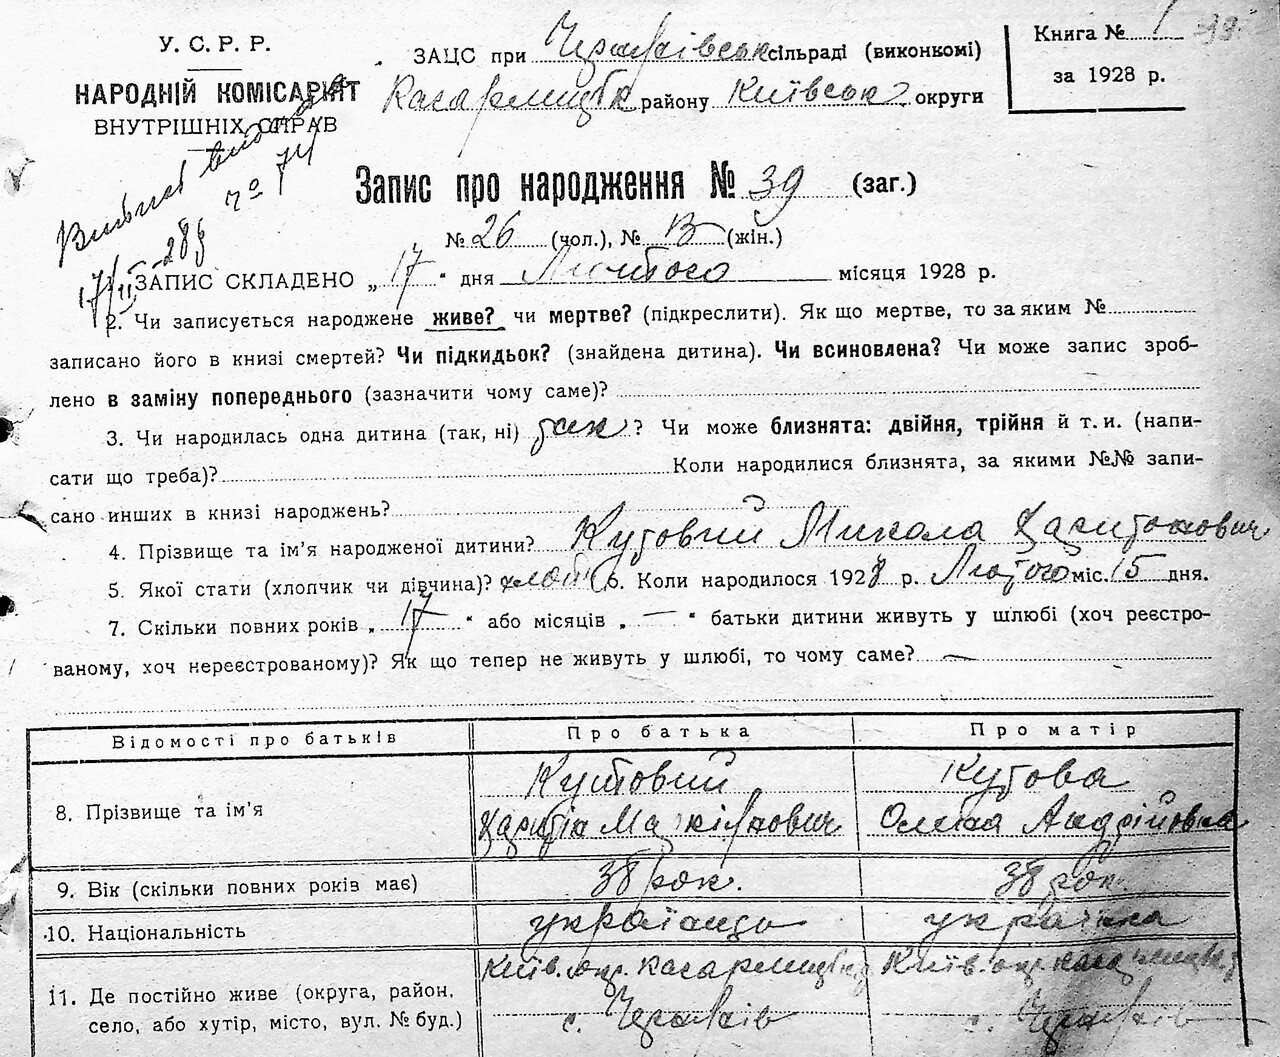 У. С. Р. Р.
НАРОДНІЙ КОМІСАРІЯТ
ВНУТРІШНІХ СПРАВ
ЗАЦС при сільраді (виконкомі)
району Київськ округи
Книга № 1 39
за 1928 р.
17/II 28 р
Запис про народження № 39 (заг.)
№ 26 (чол.), № (жін.)
ЗАПИС СКЛАДЕНО „ 17 “ дня Лютого місяця 1928 р.
2. Чи записується народжене живе? чи мертве? (підкреслити). Як що мертве, то за яким №
записано його в книзі смертей? Чи підкидьок? (знайдена дитина). Чи всиновлена? Чи може запис зроб-
лено в заміну попереднього (зазначити чому саме)?
3. Чи народилась одна дитина (так, ні) так ? Чи може близнята: двійня, трійня й т. и. (напи-
сати що треба)? Коли народилися близнята, за якими №№ запи-
сано инших в книзі народжень?
4. Прізвище та ім’я народженої дитини? Кутовий Микола Харитонович
5. Якої стати (хлопчик чи дівчина)? хлоп 6. Коли народилося 1928 р. Лютого міс. 15 дня.
7. Скільки повних років „ 17 “ або місяців „ — “ батьки дитини живуть у шлюбі (хоч реєстро-
ваному, хоч нереєстрованому)? Як що тепер не живуть у шлюбі, то чому саме? —
Відомості про батьків Про батька Про матір
8. Прізвище та ім’я Кутовий Кутова
Харитін Олена Андрійовна
9. Вік (скільки повних років має) 38 рок. 38 рок.
10. Національність українець українка
11. Де постійно живе (округа, район, Київ. окр. Київ. окр.
село, або хутір, місто, вул. № буд.) с. с.